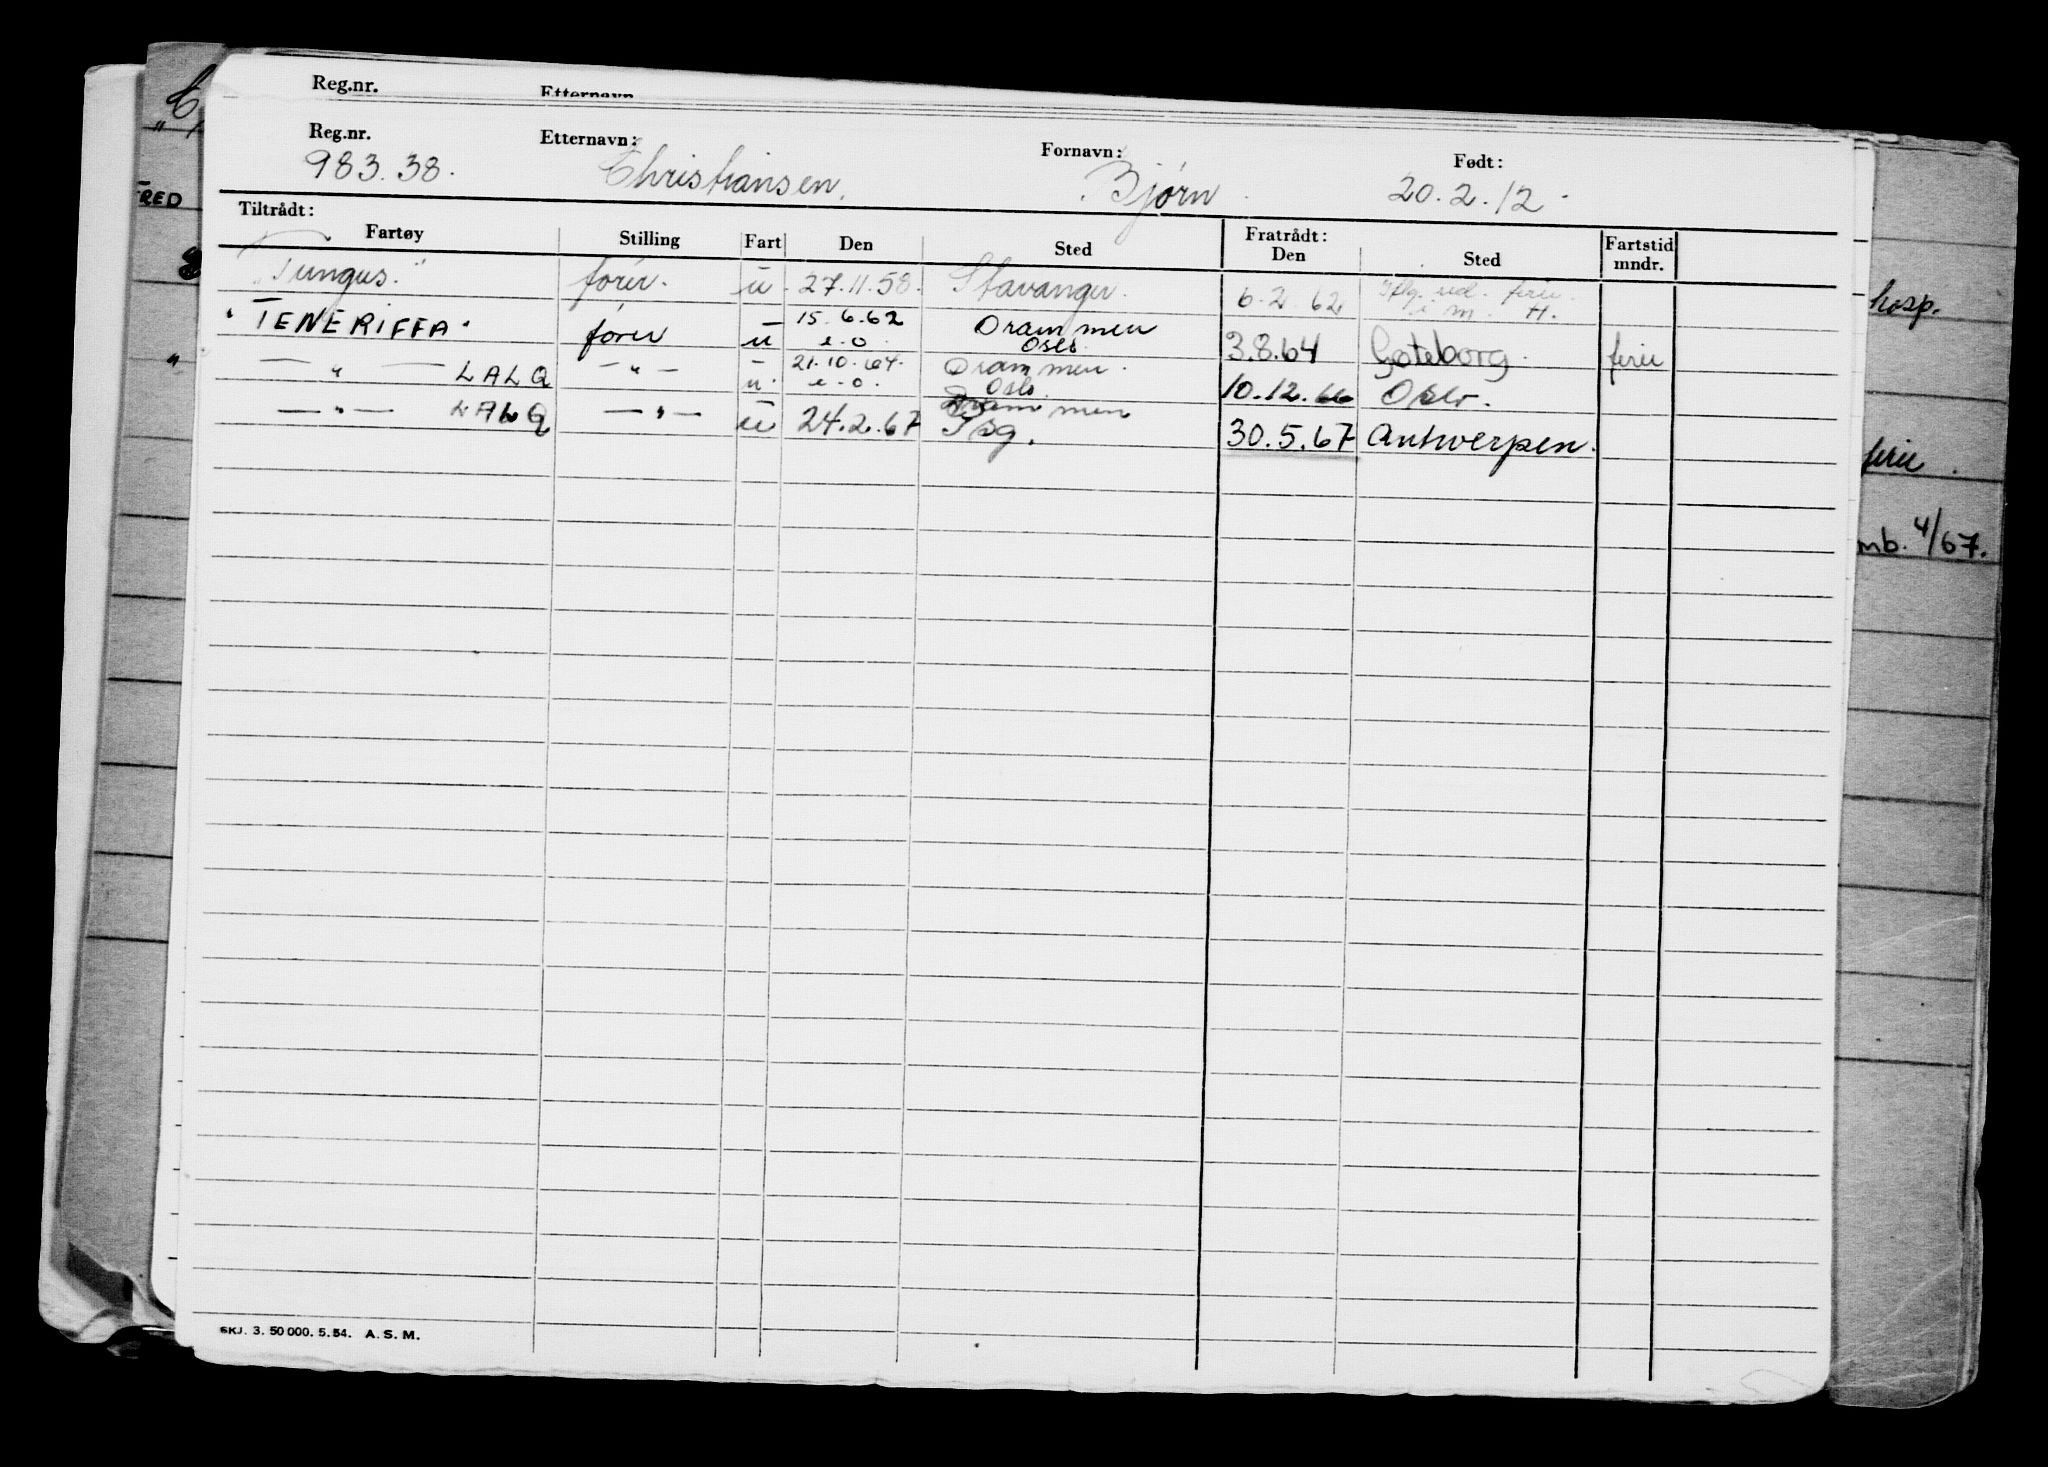 Reg.nr. Etternavn
Reg.nr. Etternavn: Fornavn: Født:
983.38. Christiansen. Bjørn 20.2.12.
Tiltrådt: Fratrådt:
Fartøy Stilling Fart Den Sted Den Sted Fartstid mndr.
"Tungus." fører. u. 27.11.58. Stavanger. 6.2.62 ferie.
i m. H.
15.6.62 Drammen
"TENERIFFA" fører u e.o. Oslo. 3.8.64 Gøteborg. ferie
21.10.64. Drammen.
— " — LALQ — " — u. e.o. Oslo. 10.12.66 Oslo.
Drammen
— " — LALQ — " — u 24.2.67 30.5.67 Antwerpen.
FRED
"
hosp.
ferie.
mb. 4/67.
SKJ. 3. 50 000. 5. 54. A. S. M.